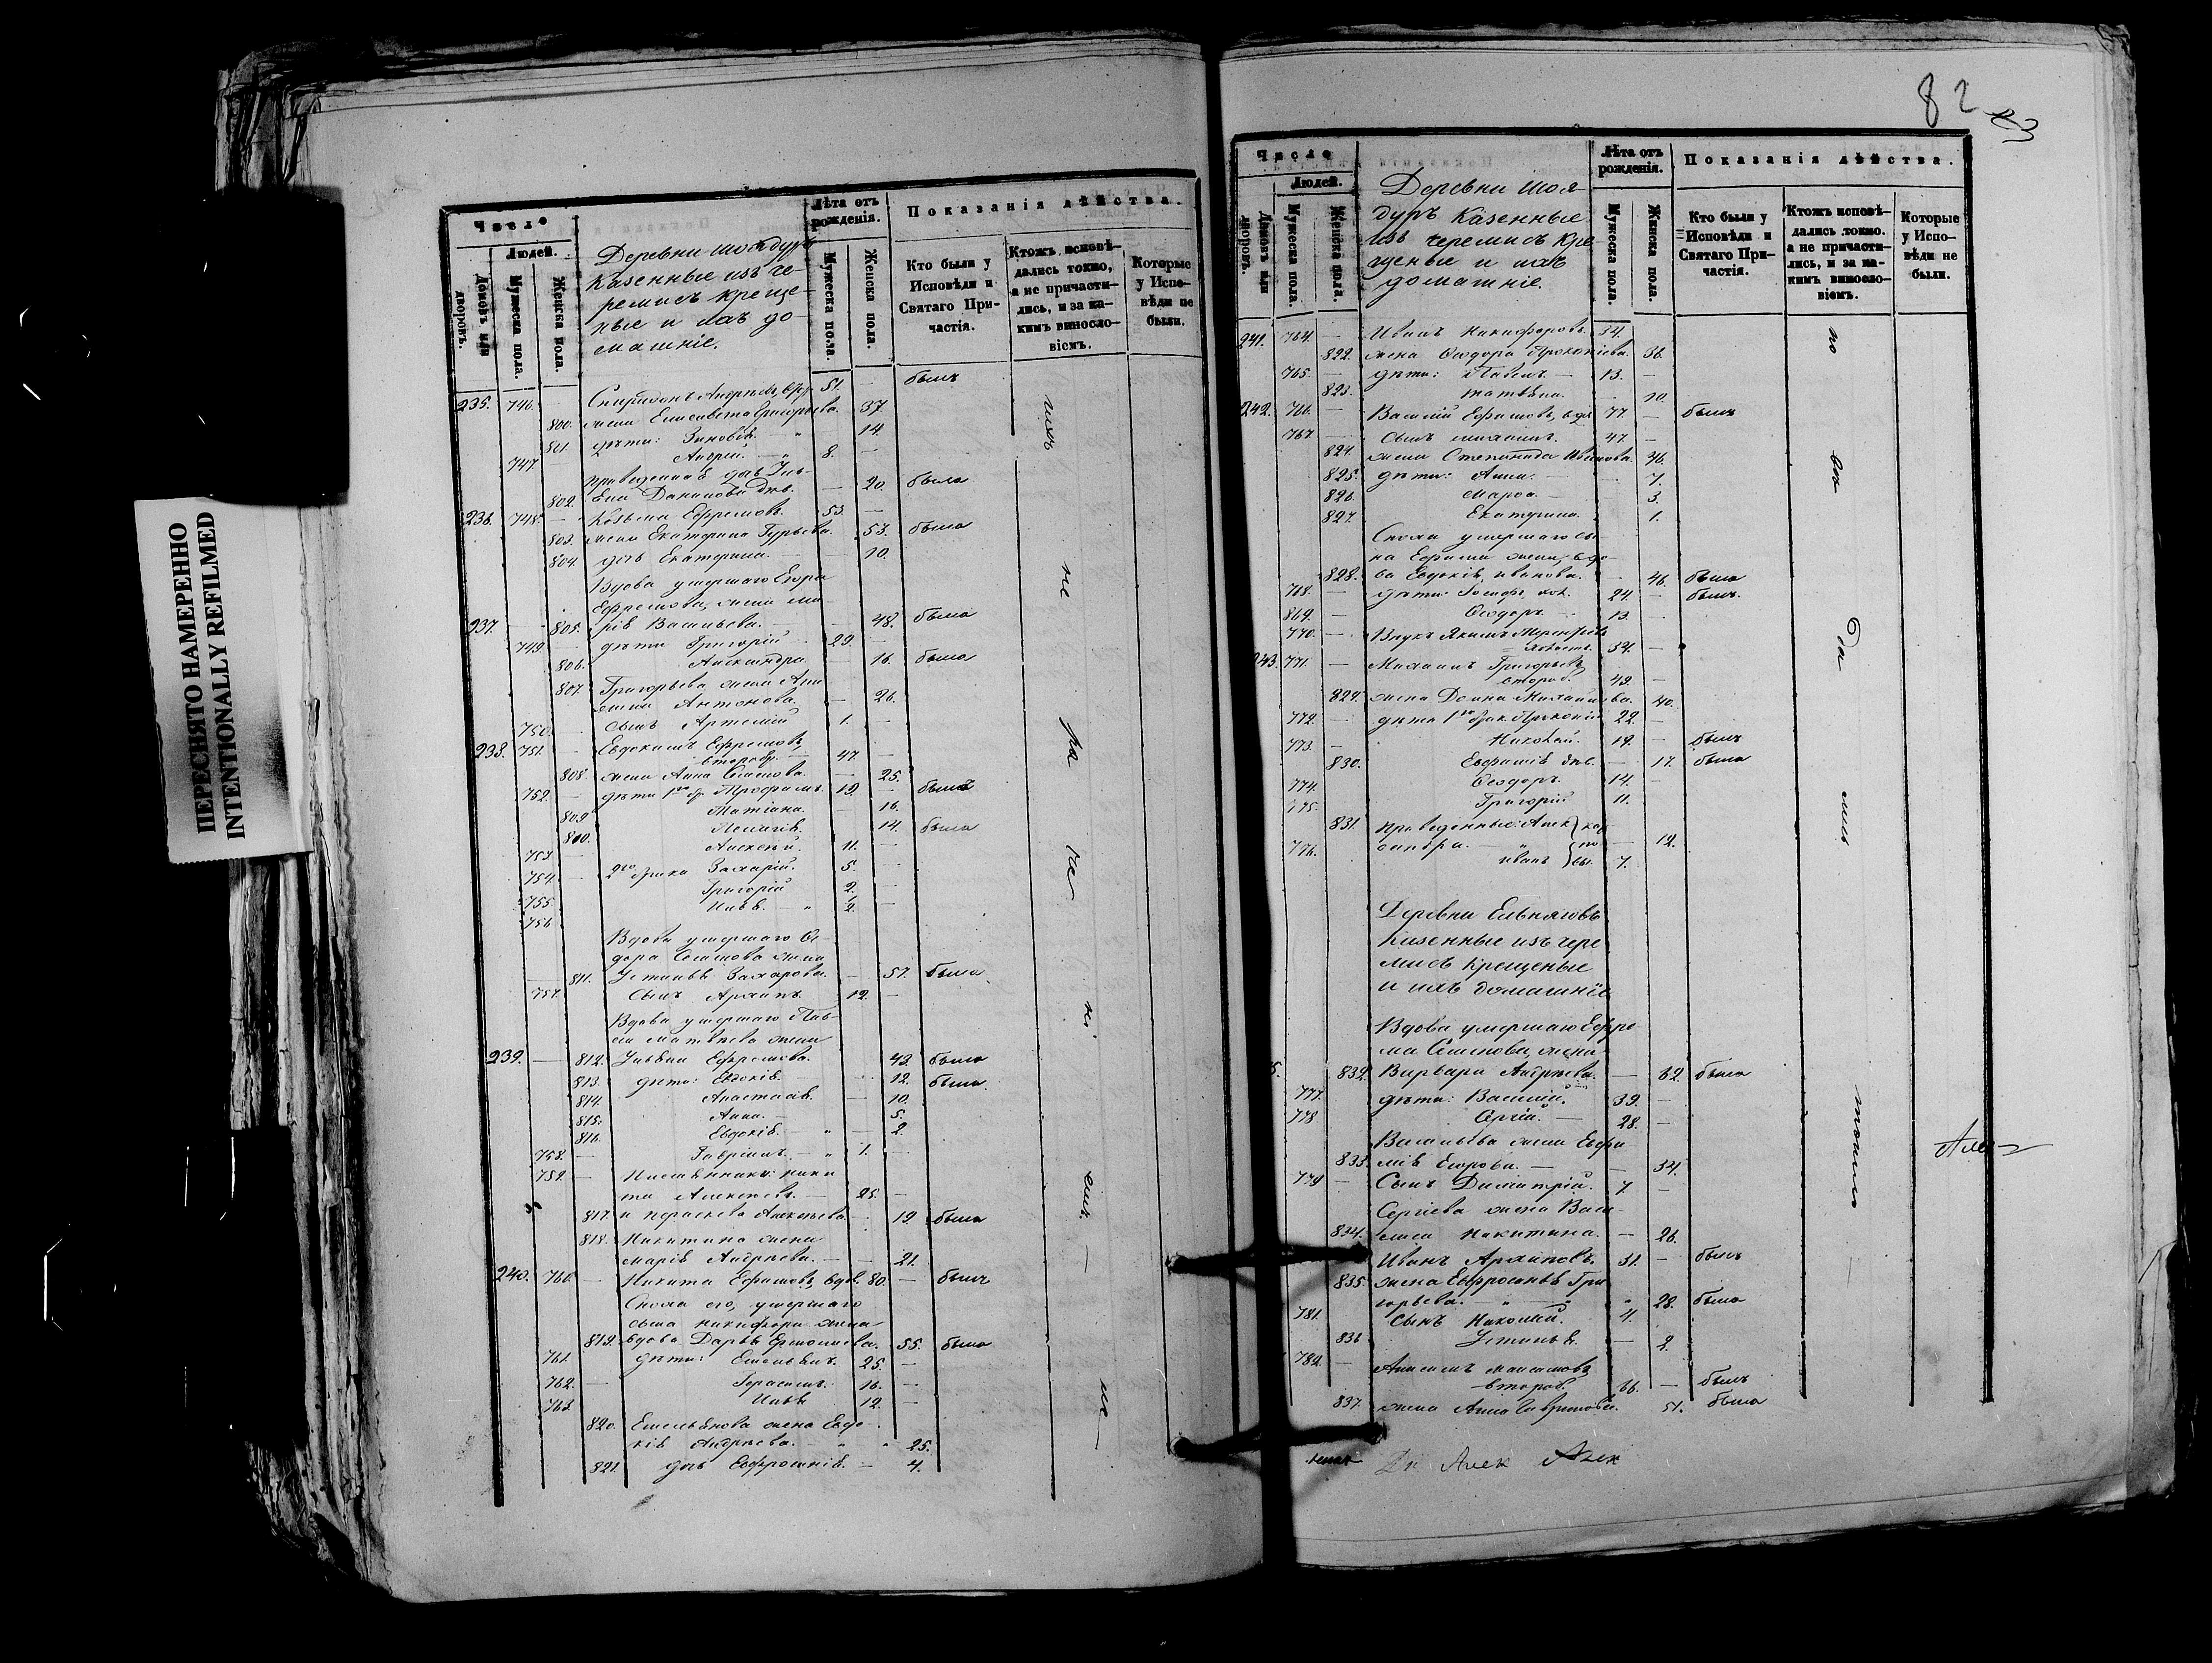 ПЕРЕСНЯТО НАМЕРЕННО
INTENTIONALLY REFILMED
Число
Людей.
Домовъ или дворовъ.
Мужеска пола.
Женска пола.
Деревни
казенные изъ че-
ремисъ креще-
ные и ихъ до-
машніе.
Лѣта отъ рожденія.
Мужеска пола.
Женска пола.
Показанія дѣйства.
Кто были у Исповѣди и Святаго При-частія.
Ктожъ исповѣ-дались токмо, а не причасти-лись, и за ка-кимъ винослo-віемъ.
Которые у Испо-вѣди не были.
235. 746. — Спиридонъ Андреевъ, 51. — былъ
800. жена Елисавета Григорьева. 37.
801. дѣти: Зиновія. — 14.
747. Андрей. — 8. —
802. Данилова дѣв. — 20. была
236. 748. — Козьма Ефремовъ. 53. —
803. жена Екатерина Гурьева. 53. была
804. дочь Екатерина. — 10.
Вдова умершаго Егора
Ефремова, жена Ма-
237. — 805. рія Васильева. — 48. была
749. дѣти Григорій 29.
806. Александра — 16. была
807. Григорьева жена
Антонова. — 26.
750. сынъ Артемій 1. —
238. 751. Евдокимъ Ефремовъ,
второбр. — 47. —
808. жена Анна Семенова. — 25.
752. — дѣти 1го бр. Трофимъ. 19. — былъ
809. Татіана. 16.
810. Пелагія. 14. была
753. — Алексѣй. 11. —
754. — 2го брака Захарій. 5. —
755. Григорій 2. —
756. 2. —
Вдова умершаго Ѳе-
дора Семенова жена
811. Устинья Захарова. — 57. была
757. сынъ Архипъ. 12. —
Вдова умершаго Пав-
ла Матвѣева жена
239. — 812. Ульяна Ефремова. 43. была
813. дѣти: Евдокія. 12. была.
814. Анастасія. — 10.
815. Анна. — 5.
816. Евдокія. — 2.
758. — Гавріилъ. — 1. —
759. — Племянники: Ники-
та Алексѣевъ. — 25. —
817. и Параскева Алексѣева — 19. была
818. Никитина жена
Марія Андреева. — 21.
240. 760. — Никита Ефимовъ, вдов. 80. — былъ
Сноха его, умершаго
сына Никифора жена
819. вдова Дарья Ермолаева. 55. была
761. дѣти: Емельянъ. 25. —
762. — Герасимъ. 16. —
763. 12. —
820. Емельянова жена Евдо-
кія Андреева. — 25.
821. дочь Евфросинія. — 4.
82
83
Число
Людей.
Домовъ или дворовъ.
Мужеска пола.
Женска пола.
Деревни Шоя-
дуръ казенные
изъ черемисъ кре-
щеные и ихъ
домашніе.
Лѣта отъ рожденія.
Мужеска пола.
Женска пола.
Показанія дѣйства.
Кто были у Исповѣди и Святаго При-частія.
Ктожъ исповѣ-дались токмо, а не причасти-лись, и за ка-кимъ винослo-віемъ.
Которые у Испо-вѣди не были.
241. 764. — Иванъ Никифоровъ. 34.
822. жена Ѳеодора Прокопіева. 36.
765. — дѣти: Павелъ. — 13. —
823. 10.
242. 766. — Василій Ефимовъ, вдв. 77. — былъ
767. — сынъ Михаилъ. 47. —
824. жена Степанида Иванова. 46.
825. дѣти: Анна. — 7.
826. Марѳа. — 3.
827. Екатерина. 1.
Сноха умершаго сы-
на Ефима жена, вдо-
828. ва Евдокія Иванова. — 46. была
768. — дѣти: Іосифъ, хол. 24. — былъ.
869. Ѳеодоръ. — 13. —
770. — Внукъ Якимъ
холостъ. 34. —
243. 771. — Михаилъ Григорьевъ
второб. 49. —
824. жена Домна Михайлова. 40.
772. — дѣти 1го брак. Прокопій 22. —
773. — Николай. 19. — былъ
830. Евфимія дѣв. — 17. была
774. Ѳеодоръ. 14. —
775. Григорій 11.
831. Приведенные: Алек-
сандра. — 12.
776. Иванъ 7.
Деревни
казенные изъ чере-
мисъ крещеные
и ихъ домашніе
Вдова умершаго Ефре-
ма Семенова, жена
832. Варвара Андреева. — 62. была
777. дѣти: Василій. 39. —
778. Сергій. — 28. —
Васильева жена Евфи-
833. мія Егорова. — 34.
779 — Сынъ Димитрій. 7. —
Сергіева жена Васи-
834. лиса Никитина. — 26.
Иванъ Архиповъ. 31. — былъ
835. жена Евфросинія Гри-
горьева. 28. была
781. Сынъ Николай. 4.
836 Устинья. — 2.
782. — Анисимъ Максимовъ
второб. 66. — былъ
837. жена Анна Гаврилова. 51. была
Алек Алек